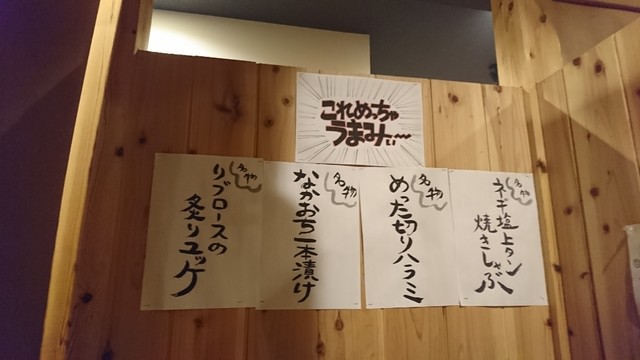 これめっちゃ
うまみぃ〜〜
名物
ネギ塩上タン
焼きしゃぶ
名物
めった切りハラミ
名物
なかおち一本漬け
名物
リブロースの
炙りユッケ